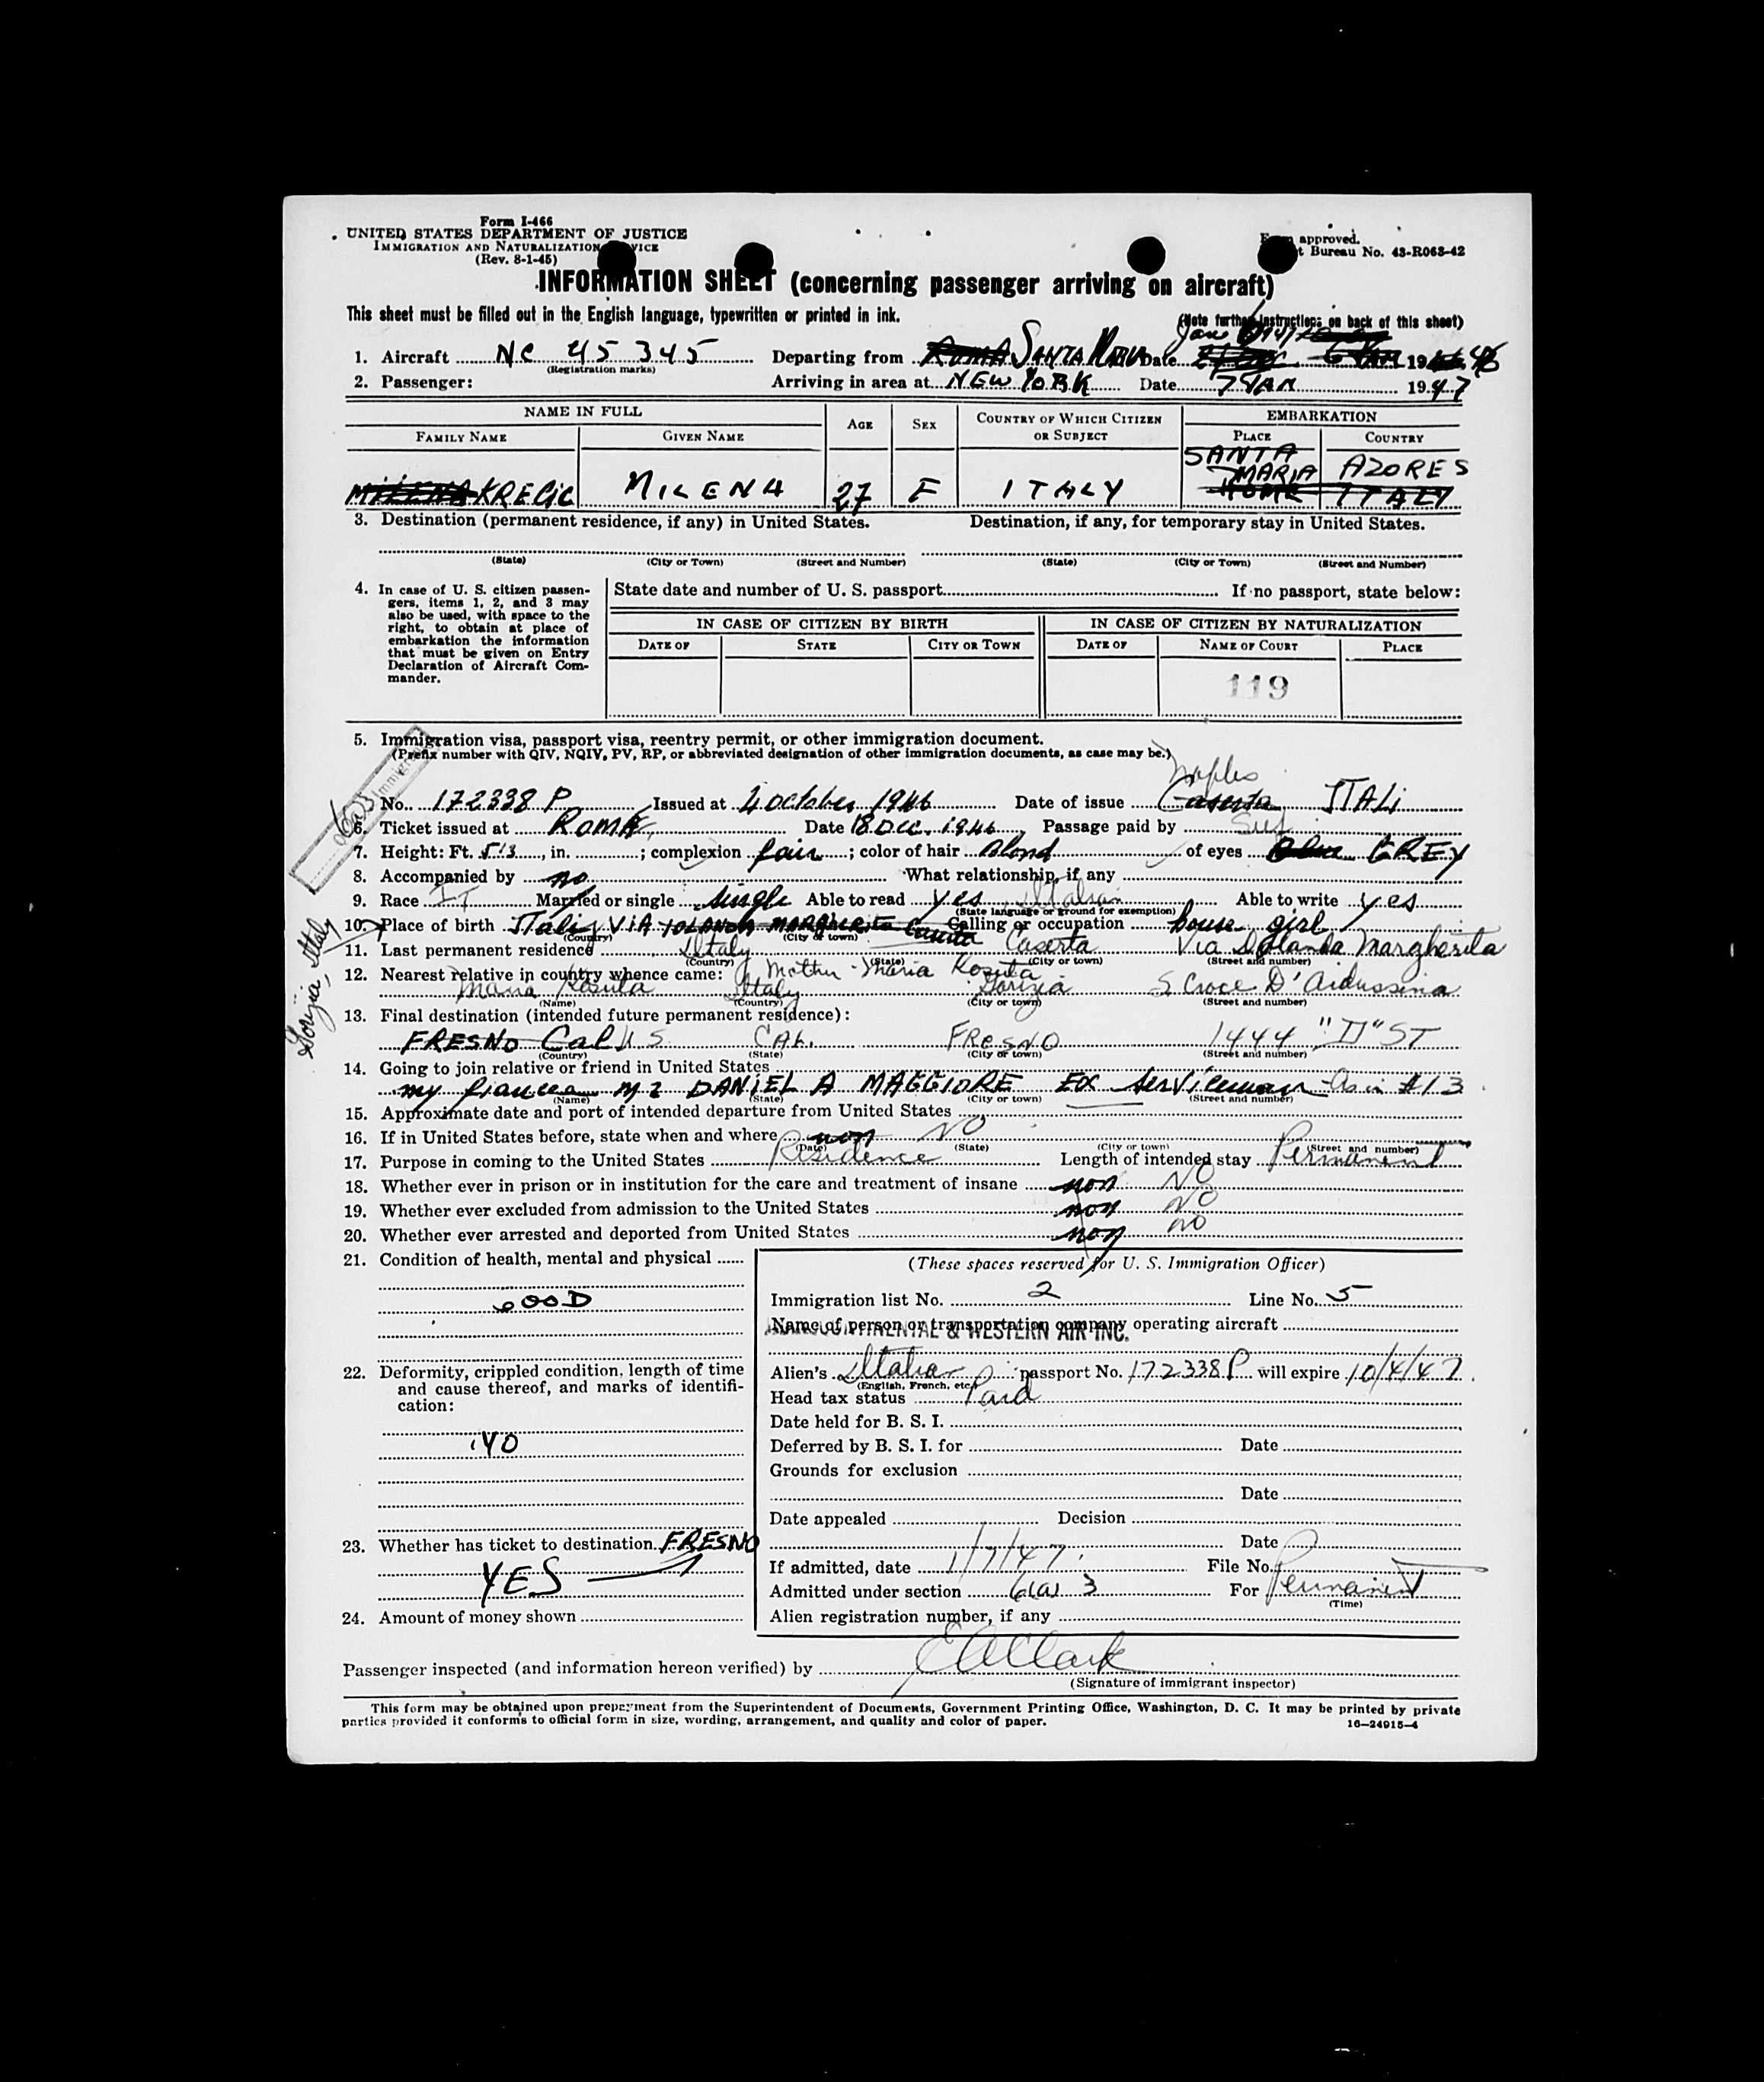 Form I-466
UNITED STATES DEPARTMENT OF JUSTICE
IMMIGRATION AND NATURALIZATION
(Rev. 8-1-45)
approved.
Bureau No. 43-R063-42
INFORMATION SHEET (concerning passenger arriving on aircraft)
This sheet must be filled out in the English language, typewritten or printed in ink.
(Note further instructions on back of this sheet)
1. Aircraft NC 45345 Departing from SANTA MARIA Date Jan 19
(Registration marks)
2. Passenger: Arriving in area at NEW YORK Date 7 JAN 1947
NAME IN FULL AGE SEX COUNTRY OF WHICH CITIZEN OR SUBJECT EMBARKATION
FAMILY NAME GIVEN NAME PLACE COUNTRY
SANTA MARIA AZORES
KRECIC MILENA 27 F ITALY ITALY
3. Destination (permanent residence, if any) in United States. Destination, if any, for temporary stay in United States.
(State) (City or Town) (Street and Number) (State) (City or Town) (Street and Number)
4. In case of U. S. citizen passengers, items 1, 2, and 3 may also be used, with space to the right, to obtain at place of embarkation the information that must be given on Entry Declaration of Aircraft Commander.
State date and number of U. S. passport If no passport, state below:
IN CASE OF CITIZEN BY BIRTH IN CASE OF CITIZEN BY NATURALIZATION
DATE OF STATE CITY OR TOWN DATE OF NAME OF COURT PLACE
119
5. Immigration visa, passport visa, reentry permit, or other immigration document.
(Prefix number with QIV, NQIV, PV, RP, or abbreviated designation of other immigration documents, as case may be.)
Naples
No. 172338 P Issued at 4 october 1946 Date of issue Caserta ITALi
6. Ticket issued at ROMA Date 18 DEC. 1946 Passage paid by Self
7. Height: Ft. 5'3, in. ; complexion fair ; color of hair Blond of eyes GREY
8. Accompanied by no What relationship, if any
9. Race IT Married or single single Able to read yes Italian Able to write yes
(State language or ground for exemption)
10. Place of birth Itali VIA IOLANDA MARGHERITA Caserta Calling or occupation house girl
(Country) (City or town)
Gorizia, Italy
11. Last permanent residence Italy Caserta Via Iolanda Margherita
(Country) (State) (City or town) (Street and number)
12. Nearest relative in country whence came: Mother - Maria Kosuta
Maria Kosuta Italy Gorizia S Croce D'Aidussina
(Name) (Country) (City or town) (Street and number)
13. Final destination (intended future permanent residence):
FRESNO Cal U.S. CAL. FRESNO 1444 "D" ST
(Country) (State) (City or town) (Street and number)
14. Going to join relative or friend in United States
my fiancee Mr DANiEL A MAGGIORE EX Serviceman - As in #13
(Name) (State) (City or town) (Street and number)
15. Approximate date and port of intended departure from United States
16. If in United States before, state when and where non NO
(Date) (State) (City or town) (Street and number)
17. Purpose in coming to the United States Residence Length of intended stay Permanent
18. Whether ever in prison or in institution for the care and treatment of insane non NO
19. Whether ever excluded from admission to the United States non NO
20. Whether ever arrested and deported from United States non no
21. Condition of health, mental and physical
GOOD
22. Deformity, crippled condition, length of time and cause thereof, and marks of identification:
NO
23. Whether has ticket to destination FRESNO
YES
24. Amount of money shown
(These spaces reserved for U. S. Immigration Officer)
Immigration list No. 2 Line No. 5
Name of person or transportation company operating aircraft
& WESTERN AIR INC.
Alien's Italian passport No. 172338 P will expire 10/4/47.
(English, French, etc.)
Head tax status Paid
Date held for B. S. I.
Deferred by B. S. I. for Date
Grounds for exclusion
Date
Date appealed Decision
Date
If admitted, date 1/7/47. File No.
Admitted under section 6(a) 3 For Permanent
(Time)
Alien registration number, if any
Passenger inspected (and information hereon verified) by E A Clark
(Signature of immigrant inspector)
This form may be obtained upon prepayment from the Superintendent of Documents, Government Printing Office, Washington, D. C. It may be printed by private
parties provided it conforms to official form in size, wording, arrangement, and quality and color of paper.
16—24915-4